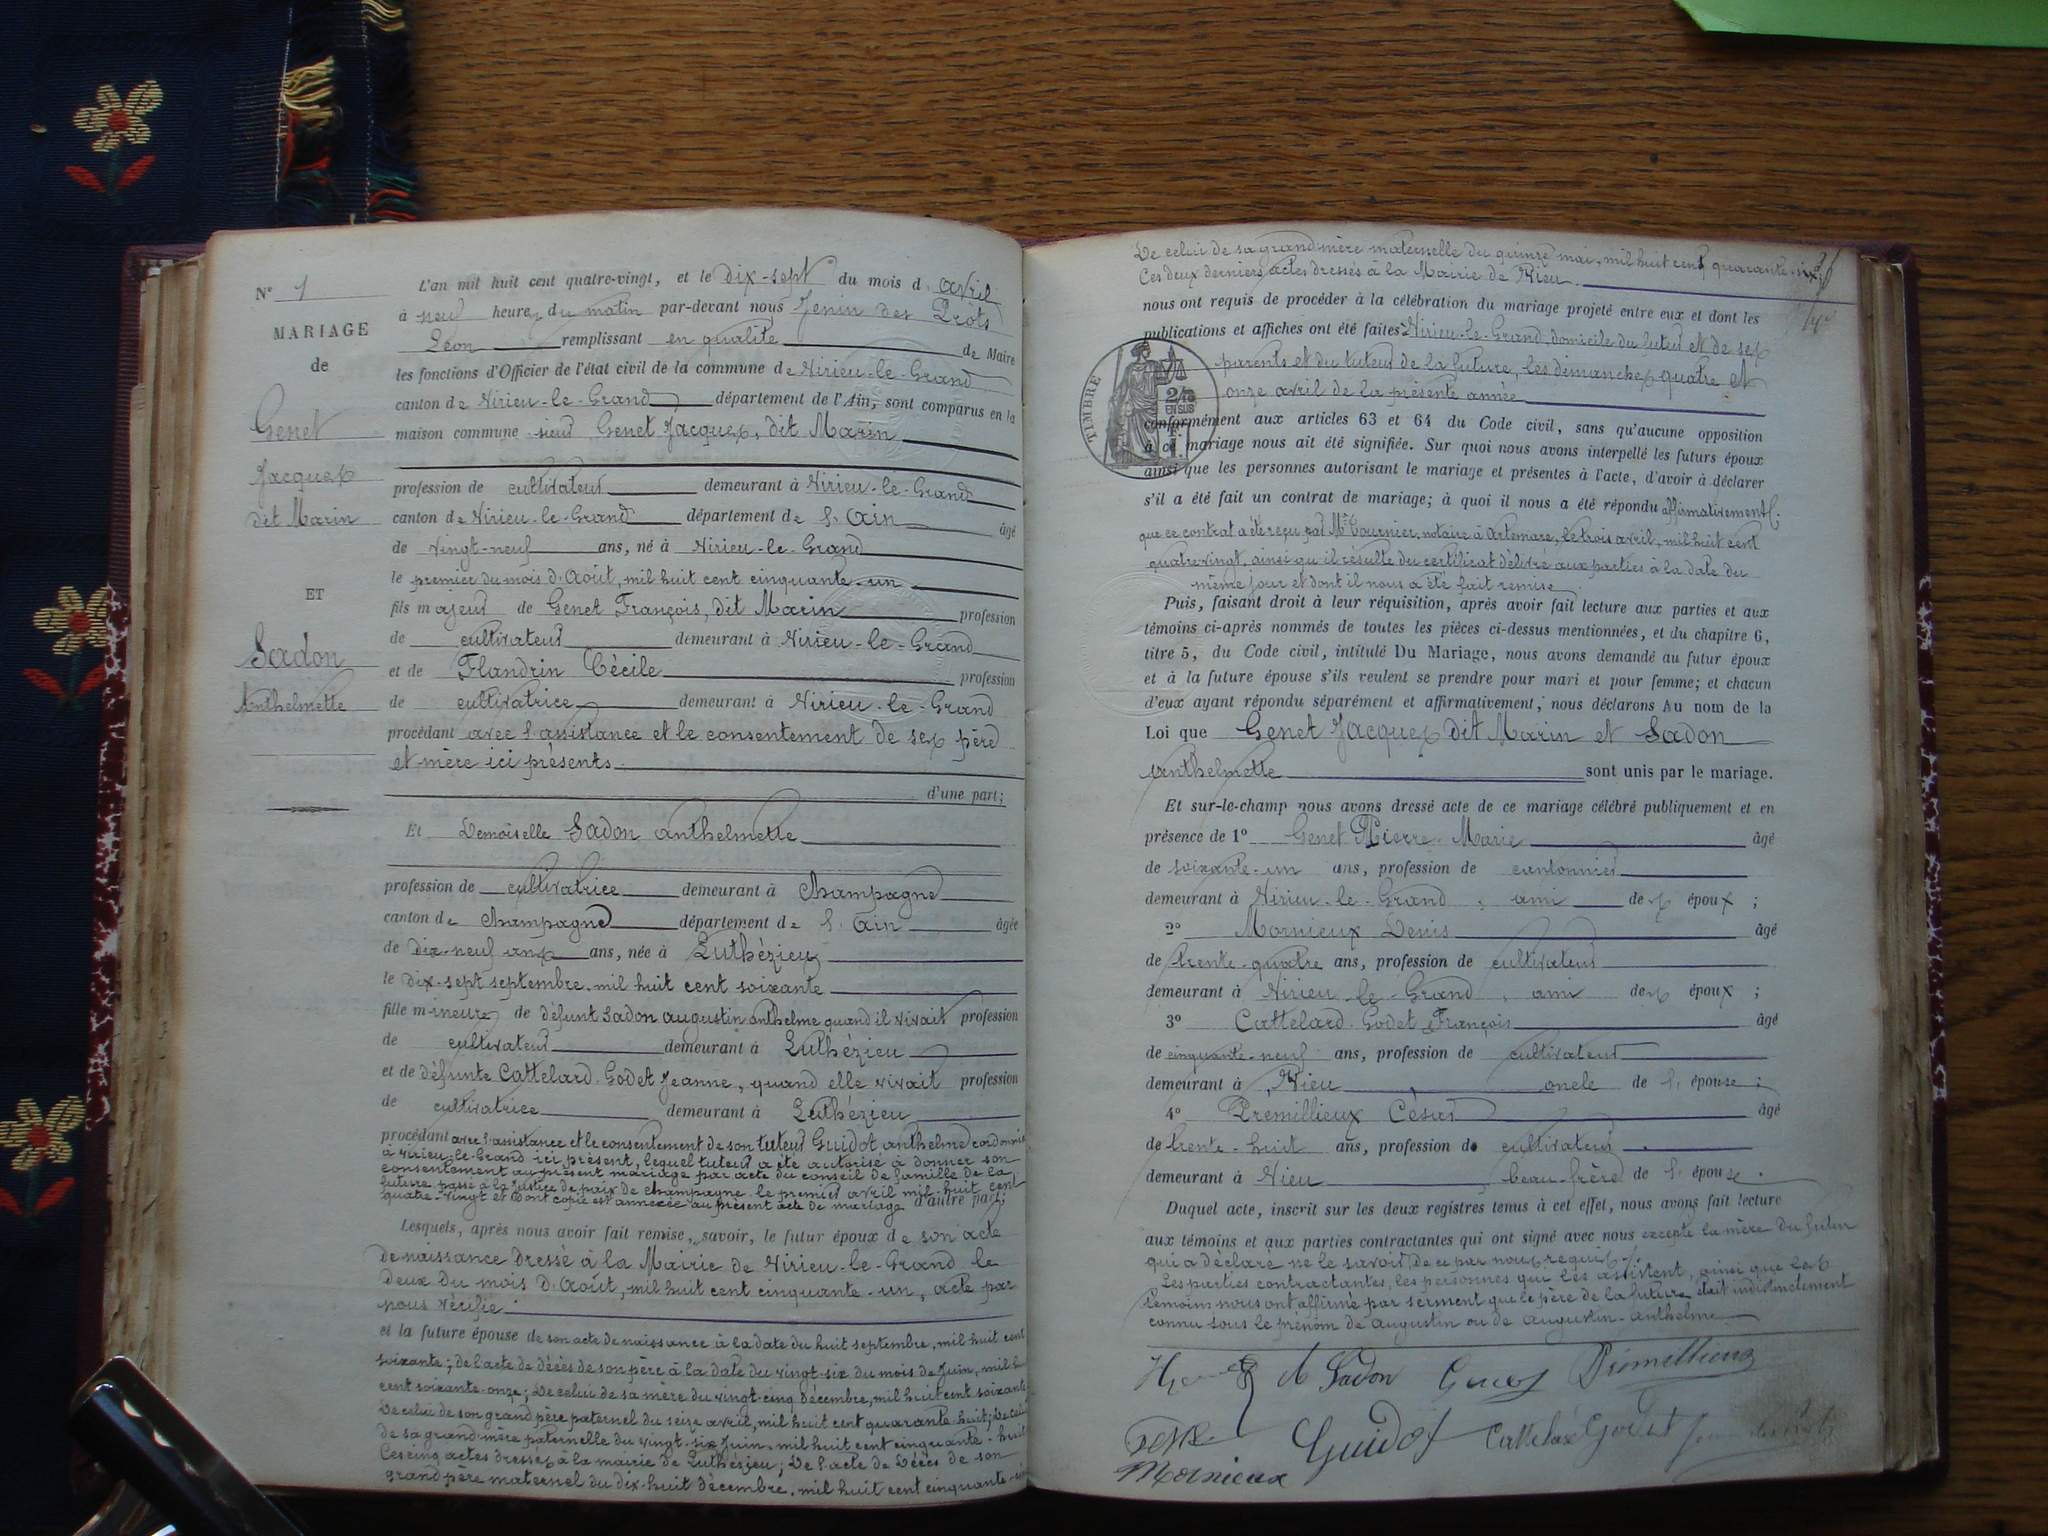 N° 1
MARIAGE
de
Genet
Jacques
dit Marin
ET
Sadon
Anthelmette
L'an mil huit cent quatre-vingt, et le dix-sept du mois d'avril
à neuf heures du matin par-devant nous Jenin des Prôts
Léon remplissant en qualité de Maire
les fonctions d'Officier de l'état civil de la commune de Virieu-le-Grand
canton de Virieu-le-Grand département de l'Ain, sont comparus en la
maison commune sieur Genet Jacques, dit Marin
profession de cultivateur demeurant à Virieu-le-Grand
canton de Virieu-le-Grand département de l'Ain âgé
de vingt-neuf ans, né à Virieu-le-Grand
le premier du mois d'Août, mil huit cent cinquante-un
fils majeur de Genet François, dit Marin profession
de cultivateur demeurant à Virieu-le-Grand
et de Flandrin Cécile profession
de cultivatrice demeurant à Virieu-le-Grand
procédant avec l'assistance et le consentement de ses père
et mère ici présents
d'une part;
Et Demoiselle Sadon anthelmette
profession de cultivatrice demeurant à Champagne
canton de Champagne département de l'Ain âgée
de dix-neuf ans ans, née à Luthézieu
le dix-sept septembre mil huit cent soixante
fille mineure de défunt Sadon augustin anthelme quand il vivait profession
de cultivateur demeurant à Luthézieu
et de défunte Cattelard-Godet Jeanne, quand elle vivait profession
de cultivatrice demeurant à Luthézieu
procédant avec l'assistance et le consentement de son tuteur Guidot anthelme cordonnier
à Virieu-le-Grand ici présent, lequel tuteur a été autorisé à donner son
consentement au présent mariage par acte du conseil de famille de la
future passé à la justice de paix de Champagne le premier avril mil huit cent
quatre-vingt et dont copie est annexée au présent acte de mariage d'autre part;
Lesquels, après nous avoir fait remise, savoir, le futur époux de son acte
de naissance dressé à la Mairie de Virieu-le-Grand le
deux du mois d'Août, mil huit cent cinquante-un, acte par
nous vérifié
et la future épouse de son acte de naissance à la date du huit septembre, mil huit cent
soixante; de l'acte de décès de son père à la date du vingt-six du mois de Juin, mil h
cent soixante-onze; De celui de sa mère du vingt-cinq décembre, mil huit cent soixante
De celui de son grand père paternel du seize avril, mil huit cent quarante-huit; De celui
de sa grand-mère paternelle du vingt-six Juin, mil huit cent cinquante-huit
Ces cinq actes dressés à la mairie de Luthézieu; De l'acte de décès de son
grand père maternel du dix-huit décembre, mil huit cent cinquante
De celui de sa grand mère maternelle du quinze mai, mil huit cent quarante-six
Ces deux derniers actes dressés à la Mairie de Vieu
nous ont requis de procéder à la célébration du mariage projeté entre eux et dont les
publications et affiches ont été faites Virieu-le-Grand, domicile du futur et de ses
parents et du tuteur de la future, les dimanches quatre et
onze avril de la présente année
TIMBRE
2/10
EN SUS
conformément aux articles 63 et 64 du Code civil, sans qu'aucune opposition
à ce mariage nous ait été signifiée. Sur quoi nous avons interpellé les futurs époux
ainsi que les personnes autorisant le mariage et présentes à l'acte, d'avoir à déclarer
s'il a été fait un contrat de mariage; à quoi il nous a été répondu affirmativement
que ce contrat a été reçu par Me Tournier notaire à Artemare, le trois avril, mil huit cent
quatre-vingt, ainsi qu'il résulte du certificat délivré aux parties à la date du
même jour et dont il nous a été fait remise
Puis, faisant droit à leur réquisition, après avoir fait lecture aux parties et aux
témoins ci-après nommés de toutes les pièces ci-dessus mentionnées, et du chapitre 6,
titre 5, du Code civil, intitulé Du Mariage, nous avons demandé au futur époux
et à la future épouse s'ils veulent se prendre pour mari et pour femme; et chacun
d'eux ayant répondu séparément et affirmativement, nous déclarons Au nom de la
Loi que Genet Jacques dit Marin et Sadon
Anthelmette sont unis par le mariage.
Et sur-le-champ nous avons dressé acte de ce mariage célébré publiquement et en
présence de 1° Genet Pierre-Marie âgé
de soixante-un ans, profession de cantonnier
demeurant à Virieu-le-Grand, ami des époux;
2° Mornieux Denis âgé
de trente-quatre ans, profession de cultivateur
demeurant à Virieu-le-Grand, ami des époux;
3° Cattelard-Godet François âgé
de cinquante-neuf ans, profession de cultivateur
demeurant à Vieu oncle de l'épouse;
4° Premillieux César âgé
de trente-huit ans, profession de cultivateur
demeurant à Vieu, beau-frère de l'épouse.
Duquel acte, inscrit sur les deux registres tenus à cet effet, nous avons fait lecture
aux témoins et aux parties contractantes qui ont signé avec nous excepté la mère du futur
qui a déclaré ne le savoir de ce par nous requis
Les parties contractantes, les personnes qui les assistent, ainsi que les
témoins nous ont affirmé par serment que le père de la future était indistinctement
connu sous le prénom de Augustin ou de Augustin-Anthelme
A Sadon Genet Prémillieux
Guidot Cattelard Godet
Mornieux